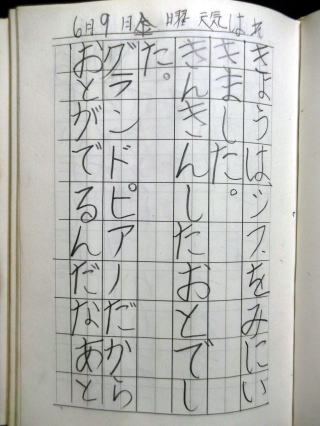 6月9日金曜 天気はれ
きょうは、をみにい
きました。
きんきんしたおとでし
た。
グランドピアノだから
おとがでるんだなあと